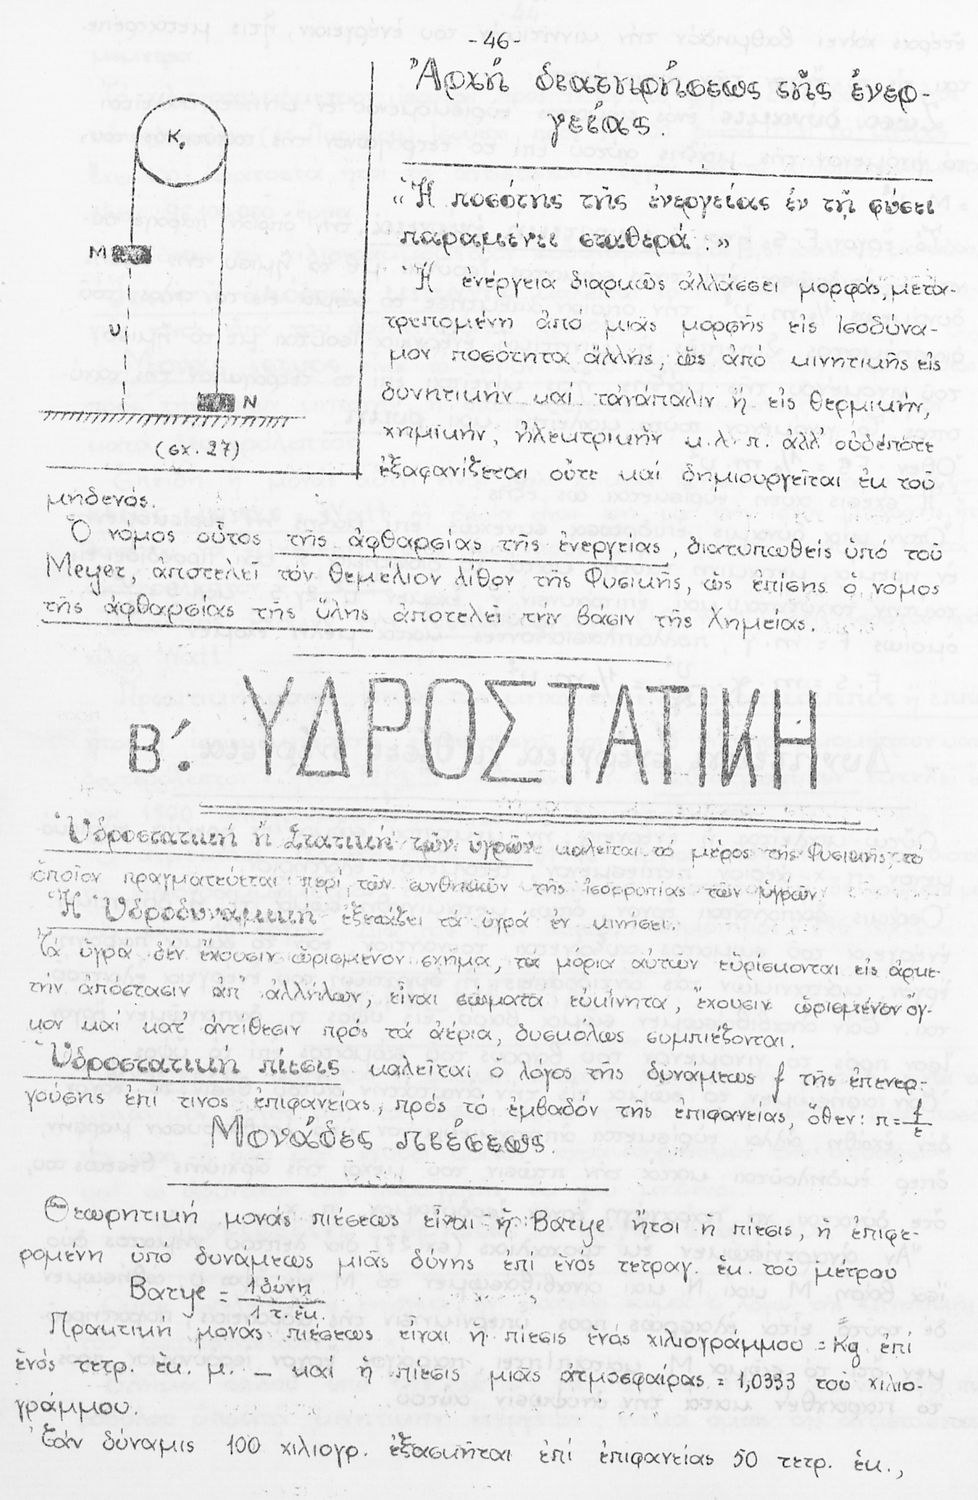 -46-
Ἀρχή διατηρήσεως τῆς ἐνερ-
γείας.
K.
M
υ
N
(σχ. 27)
"Ἡ ποσότης τῆς ἐνεργείας ἐν τῇ φύσει
παραμένει σταθερά."
Ἡ ἐνέργεια διαρκῶς ἀλλάσσει μορφάς, μετα-
τρεπομένη ἀπό μιᾶς μορφῆς εἰς ἰσοδύνα-
μον ποσότητα ἄλλης, ὡς ἀπό κινητικῆς εἰς
δυνητικήν καί τἀνάπαλιν ἤ εἰς θερμικήν,
χημικήν, ἠλεκτρικήν κ.λ.π. ἀλλ' οὐδέποτε
ἐξαφανίζεται οὔτε καί δημιουργεῖται ἐκ τοῦ
μηδενός.
Ὁ νόμος οὗτος τῆς ἀφθαρσίας τῆς ἐνεργείας, διατυπωθείς ὑπό τοῦ
Meyer, ἀποτελεῖ τόν θεμέλιον λίθον τῆς Φυσικῆς, ὡς ἐπίσης ὁ νόμος
τῆς ἀφθαρσίας τῆς ὕλης ἀποτελεῖ τήν βάσιν τῆς Χημείας.
Β΄. ΥΔΡΟΣΤΑΤΙΚΗ
Ὑδροστατική ἤ Στατική τῶν ὑγρῶν καλεῖται τό μέρος τῆς Φυσικῆς τό
ὁποῖον πραγματεύεται περί τῶν συνθηκῶν τῆς ἰσορροπίας τῶν ὑγρῶν
Ἡ Ὑδροδυναμική ἐξετάζει τά ὑγρά ἐν κινήσει.
Τά ὑγρά δέν ἔχουσιν ὡρισμένον σχῆμα, τά μόρια αὐτῶν εὑρίσκονται εἰς ἀρκε-
τήν ἀπόστασιν ἀπ' ἀλλήλων, εἶναι σώματα εὐκίνητα, ἔχουσιν ὡρισμένον ὄγ-
κον καί κατ' ἀντίθεσιν πρός τά ἀέρια, δυσκόλως συμπιέζονται.
Ὑδροστατική πίεσις καλεῖται ὁ λόγος τῆς δυνάμεως f τῆς ἐπενερ-
γούσης ἐπί τινος ἐπιφανείας, πρός τό ἐμβαδόν τῆς ἐπιφανείας, ὅθεν: π=f/ε
Μονάδες πιέσεως.
Θεωρητική μονάς πιέσεως εἶναι ἡ Barye ἤτοι ἡ πίεσις, ἡ ἐπιφε-
ρομένη ὑπό δυνάμεως μιᾶς δύνης ἐπί ἑνός τετραγ. ἑκ. τοῦ μέτρου
Barye = 1 δύνη / 1 τ. ἑκ.
Πρακτική μονάς πιέσεως εἶναι ἡ πίεσις ἑνός χιλιογράμμου = Kg ἐπί
ἑνός τετρ. ἑκ. μ. – καί ἡ πίεσις μιᾶς ἀτμοσφαίρας = 1,0333 τοῦ χιλιο-
γράμμου.
Ἐάν δύναμις 100 χιλιογρ. ἐξασκῆται ἐπί ἐπιφανείας 50 τετρ. ἑκ.,